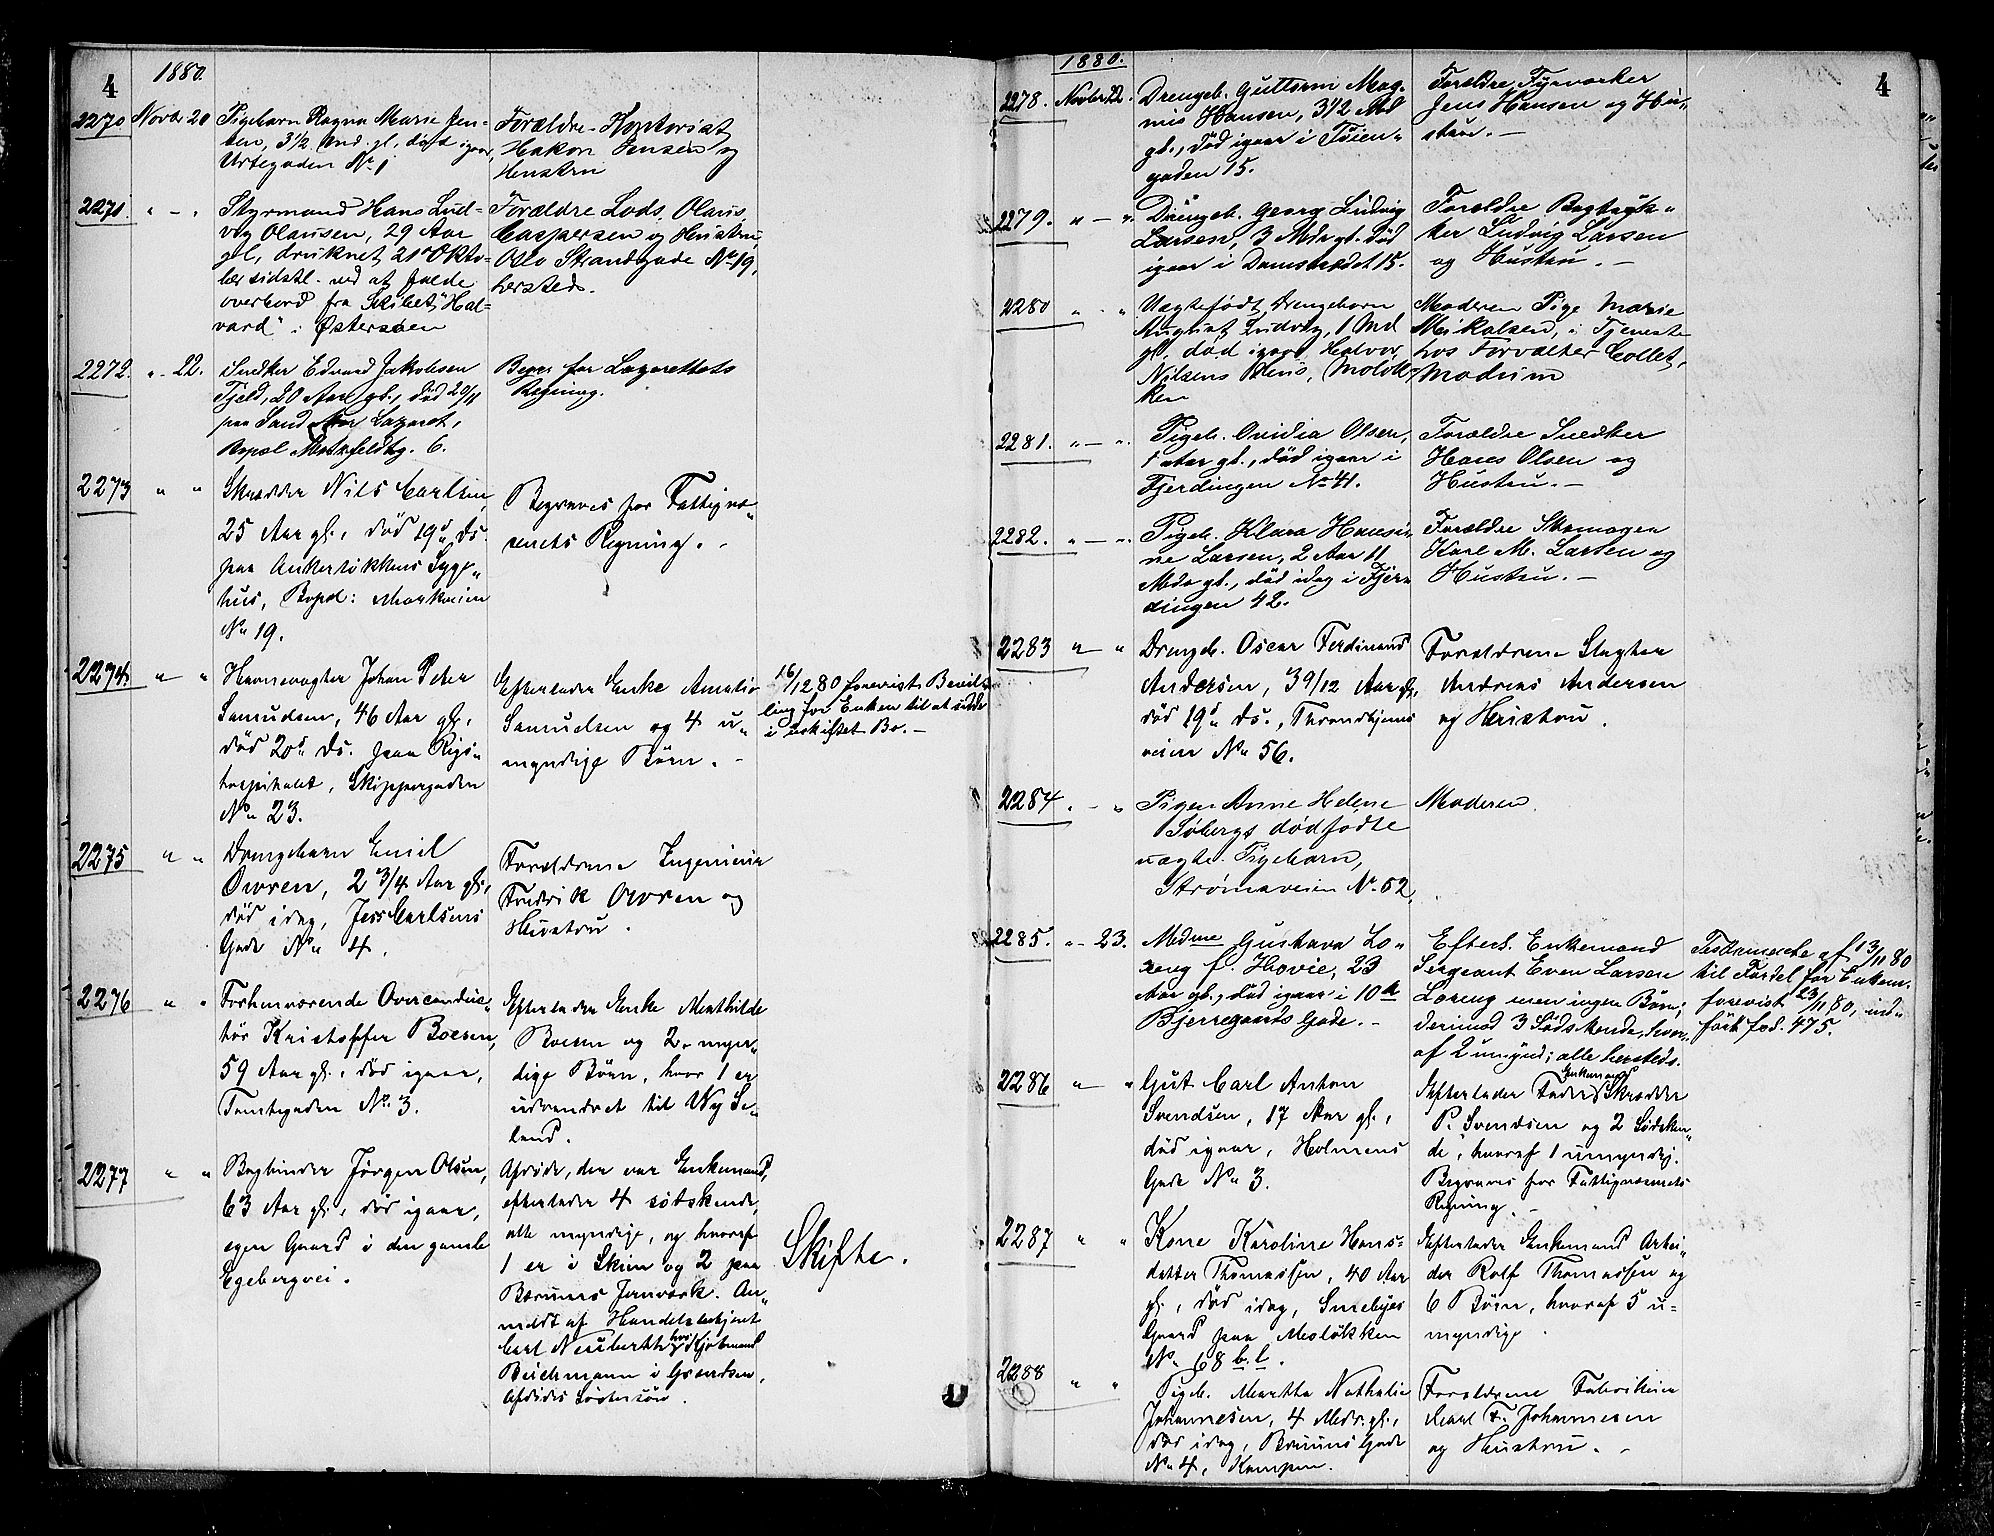 4
1880.
2270 Novbr 20
Pigebarn Ragna Marie Jen-
sen, 3 1/2 Md. gl., død igaar,
Urtegaden No 1
Forældre - Kontorist
Hakon Jensen og
Hustru
2271. " - "
Styrmand Hans Lud-
vig Olausen, 29 Aar
gl., druknet 21de Okto-
ber sidstl. ved at falde
overbord fra Skibet "Hal-
vard" i Østersøen
Forældre Lods Olaus
Caspersen og Hustru,
Oslo Strandgade No 19,
hersteds.
2272. " - 22.
Snedker Edvard Jakobsen
Fjeld, 20 Aar gl., død 20/11
paa Sand Lazaret,
Bopæl Markveien 6.
Begr. for Lazarettets
Regning.
2273 " "
Skrædder Nils Carlsen,
25 Aar gl., død 19d Ds.
paa Ankerløkkens Syge-
hus, Bopæl: Markveien
No 19.
Begraves for Fattigvæ-
senets Regning. -
2274. " "
Havnevogter Johan Peter
Samuelsen, 46 Aar gl.,
død 20d Ds. paa Rigs-
hospitalet, Skippergaden
No 23.
Efterlader Enke Amalie
Samuelsen og 4 u-
myndige Børn. -
16/12 80 forevist Bevil-
ling for Enken til at sidde
i uskiftet Bo. -
2275 " "
Drengebarn Emil
Owren, 2 3/4 Aar gl.,
død idag, Jess Carlsens
Gade No 4.
Forældrene Ingeniør
Fredrik Owren og
Hustru.
2276 " "
Forhenværende Overconduc-
tør Kristoffer Boesen,
59 Aar gl., død igaar,
Tomtegaden No 3.
Efterlader Enke Mathilde
Boesen og 2 myn-
dige Børn, hvor 1 er
udvandret til Ny Se-
land.
2277 " "
Bogbinder Jørgen Olsen,
63 Aar gl., død igaar,
egen Gaard i den gamle
Egebergvei.
Afdøde, der var Enkemand,
efterlader 4 Sødskende,
alle myndige, og hvoraf
1 er i Skien og 2 paa
Bærums Jernværk. An-
meldt af Handelsbetjent
Carl Neuberth hos Kjøbmand
Buchmann i Grændsen,
Afdødes Søstersøn.
Skifte.
4
1880.
2278. Novbr 22.
Drengeb. Guttorm Mag-
nus Hansen, 3 1/2 Md
gl., død igaar i Tøien-
gaden 15.
Forældre Fyrværker
Jens Hansen og Hu-
stru. -
2279. " - "
Drengeb. Georg Ludvig
Larsen, 3 Mdr gl. død
igaar i Damstrædet 15.
Forældre Bogtryk-
ker Ludvig Larsen
og Hustru. -
2280 " . "
Uægtefødt Drengebarn
August Ludvig, 1 Md
gl., død igaar Halvor
Nilsens Hus, Moløk-
ken
Moderen Pige Marie
Mikalsen, i Tjeneste
hos Forvalter Collet,
Modum
2281. " - "
Pigeb. Ovidia Olsen,
1 Aar gl., død igaar i
Fjerdingen No 41.
Forældre Snedker
Hans Olsen og
Hustru. -
2282. " - "
Pigeb. Klara Hansi-
ne Larsen, 2 Aar 11
Mdr gl., død idag i Fjer-
dingen 42.
Forældre Skomager
Karl M. Larsen og
Hustru. -
2283 " - "
Drengeb. Oscar Ferdinand
Andersen, 3 9/12 Aar gl.,
død 19d Ds., Throndhjems
veien No 56.
Forældrene Slagter
Andreas Andersen
og Hustru.
2284. - "
Pigen Anne Helene
Søbergs dødfødte
uægte Pigebarn,
Strømsveien No 52.
Moderen.
2285. " - 23.
Madme Gustava Lo-
reng f. Hovie, 23
Aar gl., død igaar i 10 A
Bjerregaards Gade. -
Efterl. Enkemand
Sergeant Even Larsen
Loreng men ingen Børn;
derimod 3 Sødskende, hvor-
af 2 umynd; alle hersteds.
Testamente af 13/11 80
til Fordel for Enkem.
forevist 23/11 80, ind-
ført fol. 475.
2286 " - "
Gut Carl Anton
Svendsen, 17 Aar gl.,
død igaar, Holmens
Gade No 3.
Efterlader Fader Enkemand Skrædder
P. Svendsen og 2 Sødsken-
de, hvoraf 1 umyndig.
Begraves for Fattigvæsenets
Regning. -
2287 " "
Kone Karoline Hans-
datter Thomassen, 40 Aar
gl., død idag, Smebyes
Gaard paa Moløkken
No 68 b.b.
Efterlader Enkemand Arbei-
der Rolf Thomassen og
6 Børn, hvoraf 5 u-
myndige.
2288 " "
Pigeb. Martha Nathalie
Johannesen, 4 Mdr. gl.,
død idag, Bruuns Gade
No 4, Kampen.
Forældrene
Karl F. Johannesen
og Hustru. -